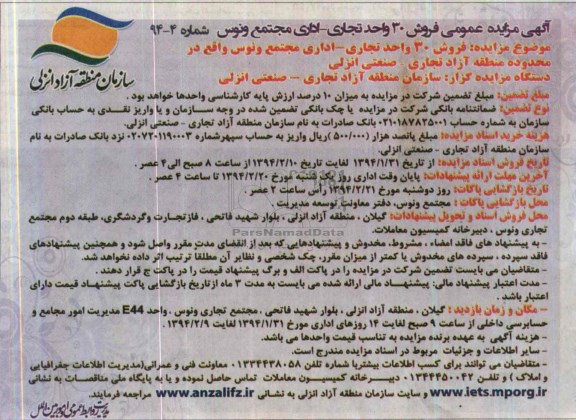 آگهی مزایده عمومی فروش ۳۰ واحد تجاری-اداری مجتمع ونوس شماره ۴-۹۴
سازمان منطقه آزاد انزلی
موضوع مزایده: فروش ۳۰ واحد تجاری-اداری مجتمع ونوس واقع در
محدوده منطقه آزاد تجاری - صنعتی انزلی
دستگاه مزایده گزار: سازمان منطقه آزاد تجاری - صنعتی انزلی
مبلغ تضمین: مبلغ تضمین شرکت در مزایده به میزان ۱۰ درصد ارزش پایه کارشناسی واحدها خواهد بود .
نوع تضمین: ضمانتنامه بانکی شرکت در مزایده یا چک بانکی تضمین شده در وجه سازمان و یا واریز نقدی به حساب بانکی
سازمان به شماره حساب ۰۲۱۰۱۸۷۸۲۵۰۰۱ بانک صادرات به نام سازمان منطقه آزاد تجاری - صنعتی انزلی.
هزینه خرید اسناد مزایده: مبلغ پانصد هزار (۵۰۰/۰۰۰) ریال واریز به حساب سپهر شماره ۰۲۰۷۲۰۱۱۹۰۰۰۳ نزد بانک صادرات به نام
سازمان منطقه آزاد تجاری - صنعتی انزلی.
تاریخ فروش اسناد مزایده: از تاریخ ۱۳۹۴/۱/۳۱ لغایت تاریخ ۱۳۹۴/۲/۱۰ از ساعت ۸ صبح الی ۴ عصر .
آخرین مهلت ارائه پیشنهادات: پایان وقت اداری روز یک شنبه مورخ ۱۳۹۴/۲/۲۰ تا ساعت ۴ عصر .
تاریخ بازگشایی پاکات: روز دوشنبه مورخ ۱۳۹۴/۲/۲۱ رأس ساعت ۲ عصر .
محل بازگشایی پاکات : مجتمع ونوس، دفتر معاونت توسعه مدیریت .
محل فروش اسناد و تحویل پیشنهادات: گیلان ، منطقه آزاد انزلی ، بلوار شهید فاتحی ، فاز تجارت و گردشگری، طبقه دوم مجتمع
تجاری ونوس ، دبیرخانه کمیسیون معاملات.
ParsNamadData
- به پیشنهاد های فاقد امضاء ، مشروط، مخدوش و پیشنهادهایی که بعد از انقضای مدت مقرر واصل شود و همچنین پیشنهادهای
فاقد سپرده ، سپرده های مخدوش یا کمتر از میزان مقرر، چک شخصی و نظایر آن مطلقا ترتیب اثر داده نخواهد شد.
- متقاضیان می بایست تضمین شرکت در مزایده را در پاکت الف و برگ پیشنهاد قیمت را در پاکت ج قرار دهند .
- مدت اعتبار پیشنهاد مالی: پیشنهاد مالی ارائه شده می بایست به مدت ۳ ماه از تاریخ بازگشایی پاکت پیشنهاد قیمت دارای
اعتبار باشد .
- مکان و زمان بازدید : گیلان ، منطقه آزاد انزلی ، بلوار شهید فاتحی ، مجتمع تجاری ونوس ، واحد E44 مدیریت امور مجامع و
حسابرسی داخلی از ساعت ۹ صبح لغایت ۱۴ روزهای اداری مورخ ۱۳۹۴/۱/۳۱ لغایت ۱۳۹۴/۲/۹ .
- هزینه آگهی به عهده برنده مزایده به تناسب قیمت واحدها می باشد.
- سایر اطلاعات و جزئیات مربوط در اسناد مزایده مندرج است.
- متقاضیان می توانند برای کسب اطلاعات بیشتر با شماره تلفن ۰۱۳۴۴۴۳۸۰۵۸ معاونت فنی و عمرانی(مدیریت اطلاعات جغرافیایی
و املاک ) و تلفن ۰۱۳۴۴۴۵۰۰۴۲ دبیرخانه کمیسیون معاملات تماس حاصل نموده و یا به پایگاه ملی مناقصات به نشانی
www.iets.mporg.ir و سایت سازمان منطقه آزاد انزلی به نشانی www.anzalifz.ir مراجعه فرمایند.